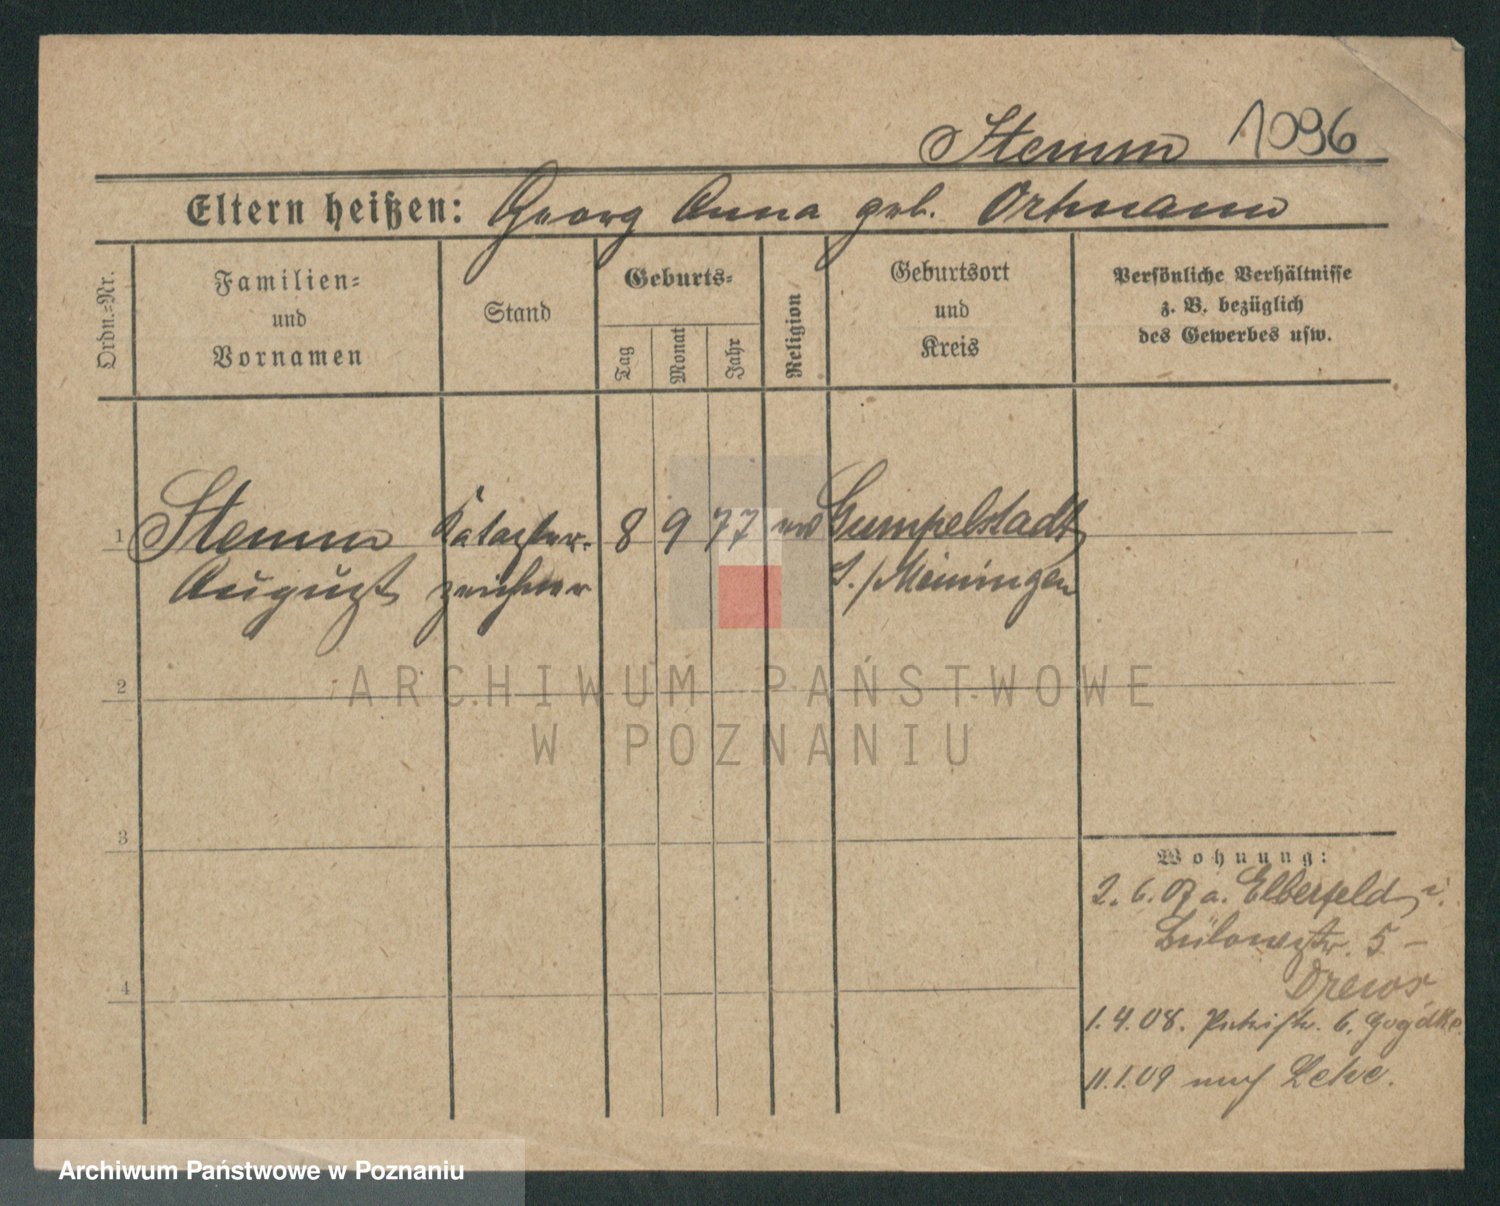 Stemm 1096
Eltern heißen: Georg Anna geb. Ortmann
Ordn.-Nr.
Familien-
und
Vornamen
Stand
Geburts-
Tag
Monat
Jahr
Religion
Geburtsort
und
Kreis
Persönliche Verhältnisse
z. B. bezüglich
des Gewerbes usw.
1 Stemm Kataster- 8 9 77 Gumpelstadt
August zeichner S./Meiningen
2
3
4
Wohnung:
2. 6. 07 a. Elberfeld
Bülowstr. 5 –
Drews
1. 4. 08. Petristr. 6.
11. 1. 09 nach Lehe.
ARCHIWUM PAŃSTWOWE
W POZNANIU
Archiwum Państwowe w Poznaniu